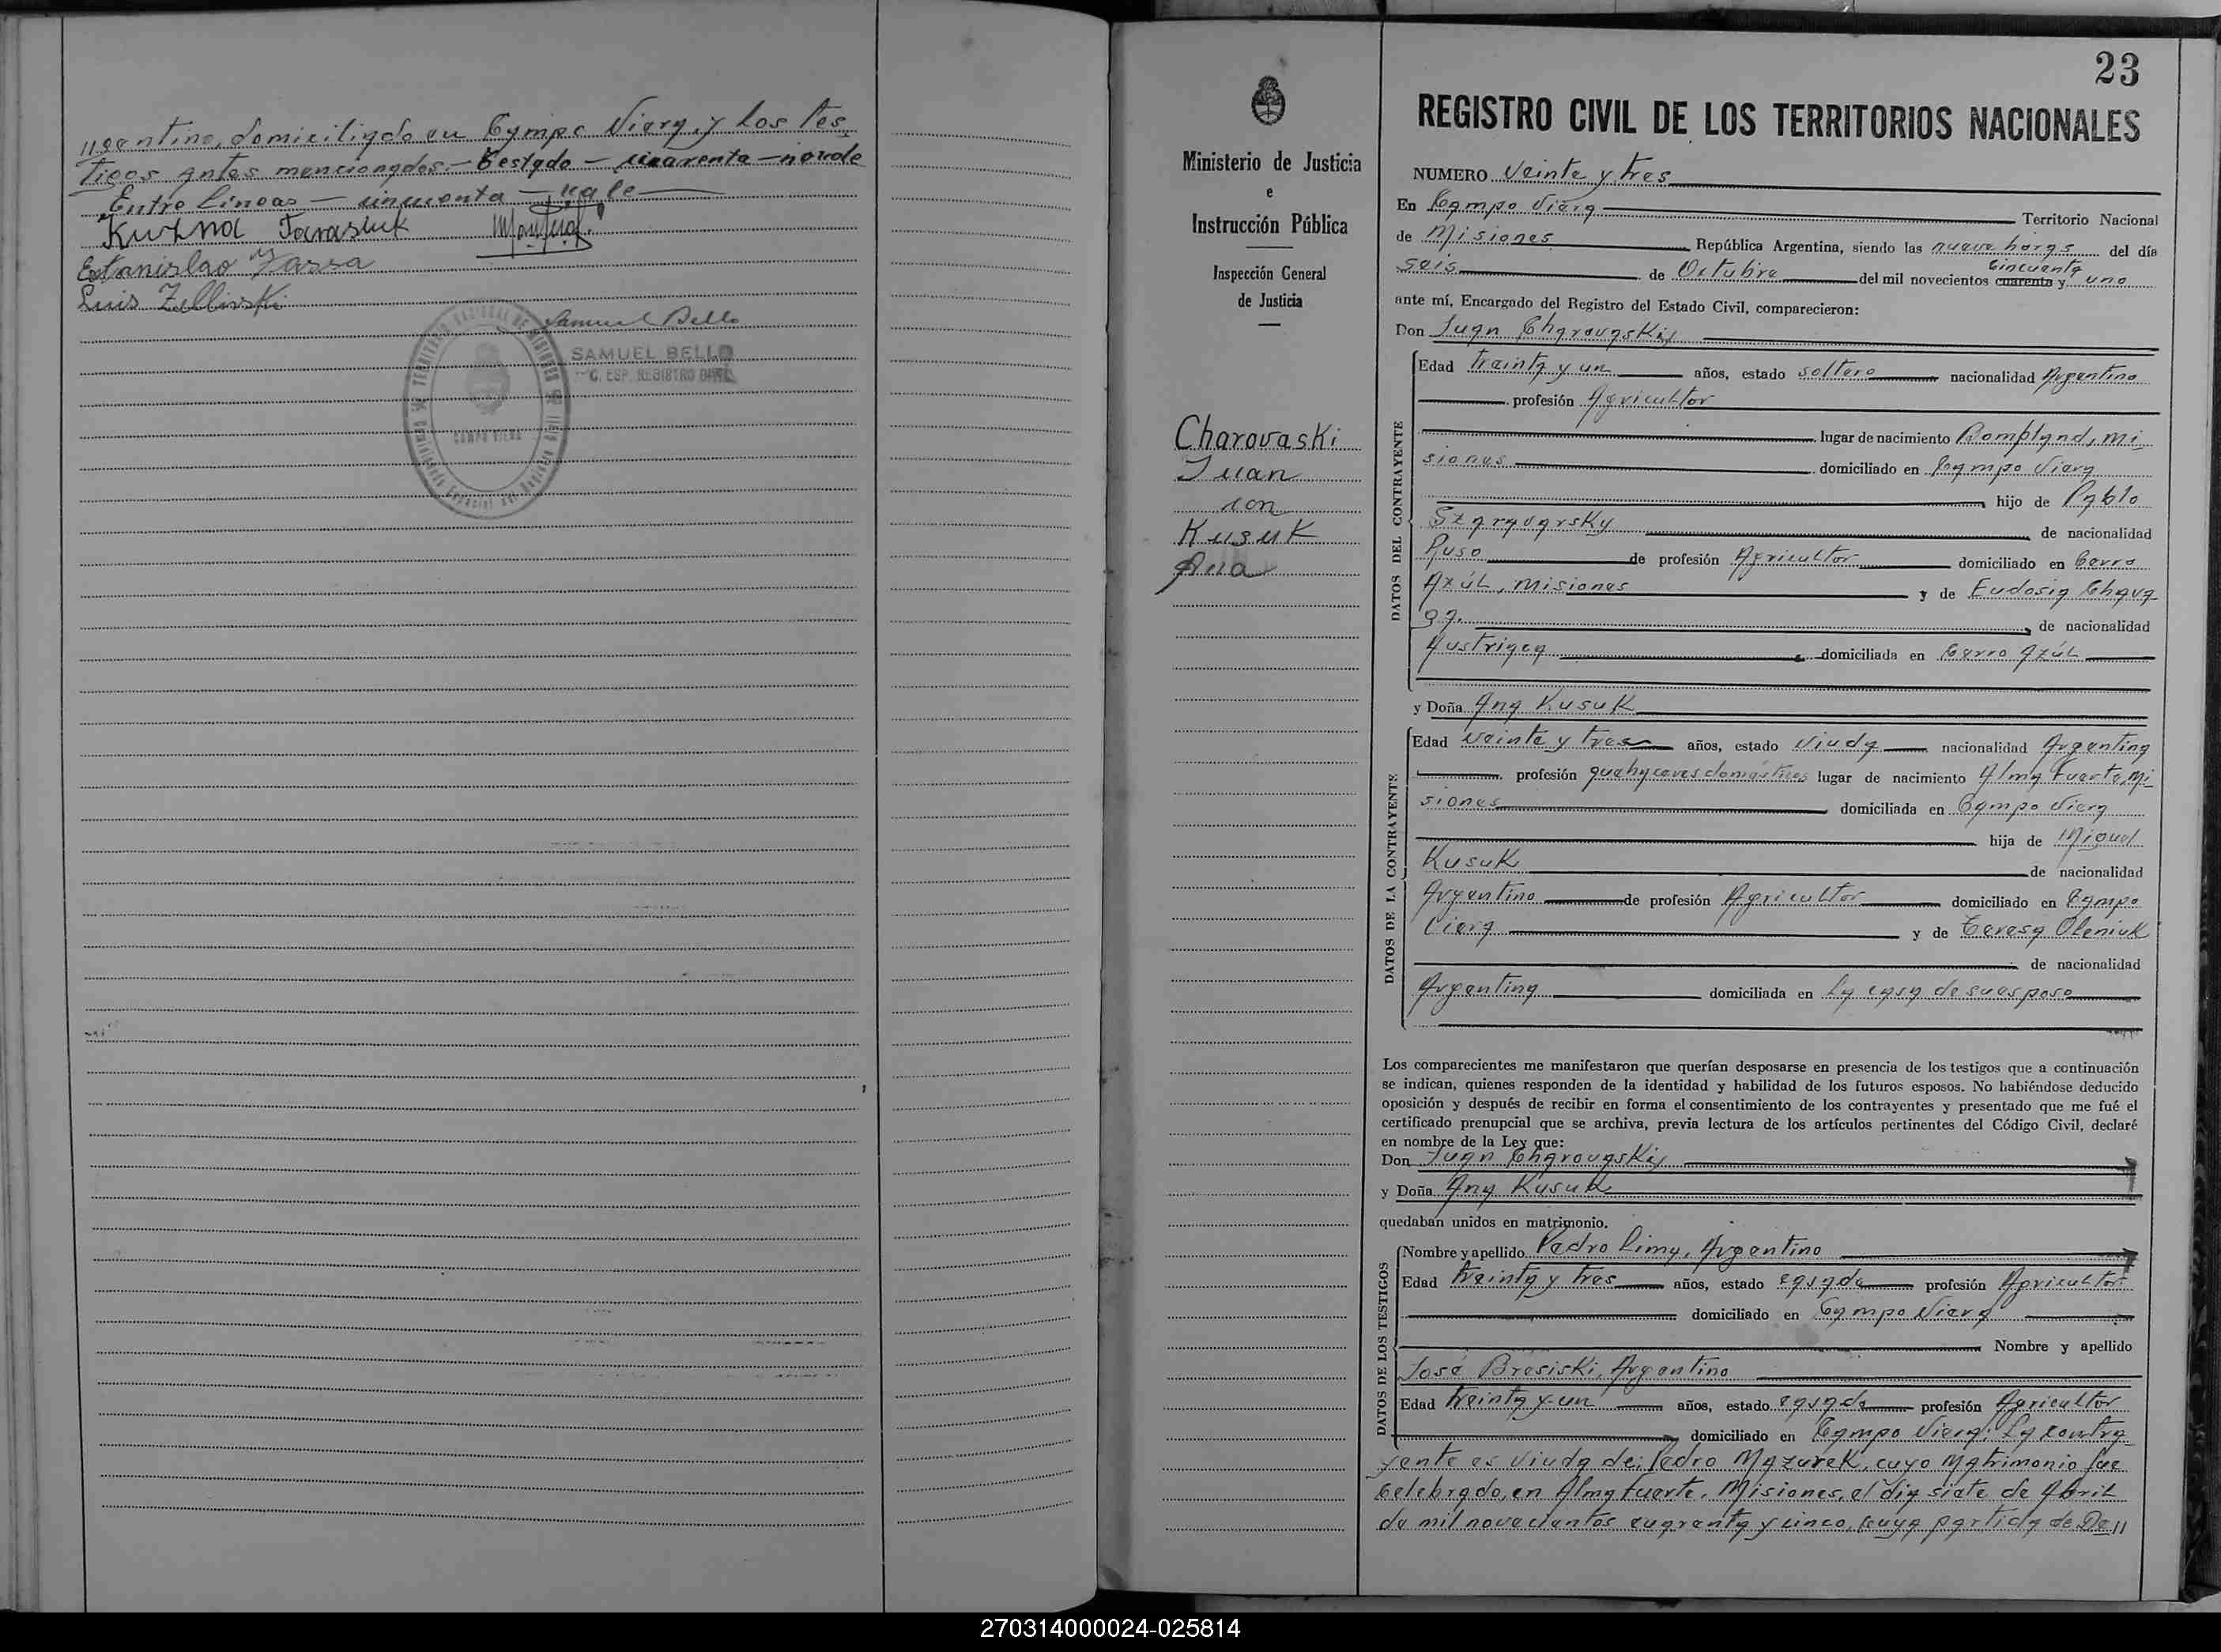 //gentino, domiciliado en Campo Viera, y los tes
tigos antes mencionados.— Testado — cuarenta — no vale
Entre lineas — cincuenta — vale
Kuzma Tarasiuk
Estanislao
Luis Zellinski
Samuel Bello
SAMUEL BELLO
CAMPO VIERA
23
Ministerio de Justicia
e
Instrucción Pública
Inspección General
de Justicia
Charovaski
Juan
con
Kusuk
Ana
REGISTRO CIVIL DE LOS TERRITORIOS NACIONALES
NUMERO Veinte y tres
En Campo Viera Territorio Nacional
de Misiones República Argentina, siendo las nueve horas del día
seis de Octubre del mil novecientos cuarenta y cincuenta uno
ante mí, Encargado del Registro del Estado Civil, comparecieron:
Don Juan Charovaski
DATOS DEL CONTRAYENTE
Edad treinta y un años, estado soltero nacionalidad Argentino
profesión Agricultor
lugar de nacimiento Bompland, Mi
siones domiciliado en Campo Viera
hijo de Pablo
Szaravarsky de nacionalidad
Ruso de profesión Agricultor domiciliado en Cerro
Azúl, Misiones y de Eudosia
de nacionalidad
Austriaca domiciliada en Cerro Azúl
y Doña Ana Kusuk
DATOS DE LA CONTRAYENTE
Edad Veinte y tres años, estado Viuda nacionalidad Argentina
profesión quehaceres domésticos lugar de nacimiento Alma Fuerte, Mi
siones domiciliada en Campo Viera
hija de Miguel
Kusuk de nacionalidad
Argentino de profesión Agricultor domiciliado en Campo
Viera y de Teresa Oleniuk
de nacionalidad
Argentina domiciliada en La casa de su esposo
Los comparecientes me manifestaron que querían desposarse en presencia de los testigos que a continuación
se indican, quienes responden de la identidad y habilidad de los futuros esposos. No habiéndose deducido
oposición y después de recibir en forma el consentimiento de los contrayentes y presentado que me fué el
certificado prenupcial que se archiva, previa lectura de los artículos pertinentes del Código Civil, declaré
en nombre de la Ley que:
Don Juan Charovaski
y Doña Ana Kusuk
quedaban unidos en matrimonio.
DATOS DE LOS TESTIGOS
Nombre y apellido Pedro Lima, Argentino
Edad treinta y tres años, estado casado profesión Agricultor
domiciliado en Campo Viera
Nombre y apellido
José Bresiski, Argentino
Edad treinta y un años, estado casado profesión Agricultor
domiciliado en Campo Viera. La contra
yente es Viuda de: Pedro Mazurek, cuyo Matrimonio fue
Celebrado, en Alma fuerte, Misiones, el día siete de Abril
de mil novecientos cuarenta y cinco, cuya partida de De//
270314000024-025814